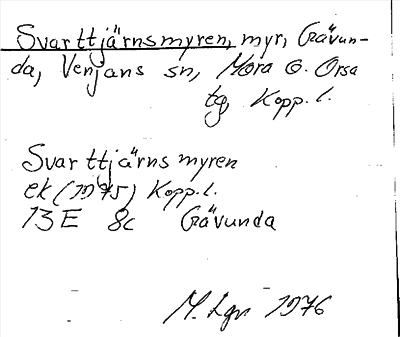 Svarttjärnsmyren, myr, Gävun-
da, Venjans sn, Mora o. Orsa
tg, Kopp. l.
Svarttjärnsmyren
ek (1975) Kopp. l.
13 E 8c Gävunda
M. Lgn 1976